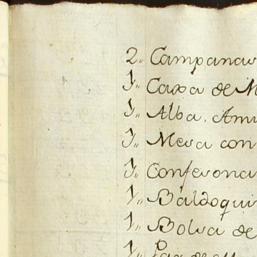 2,, Campanar
1,, Caxa de M
1,, Alba, Ami
1,, Mesa con
1,, Confesona
1,, Baldoqui
1,, Bolsa de
1,,